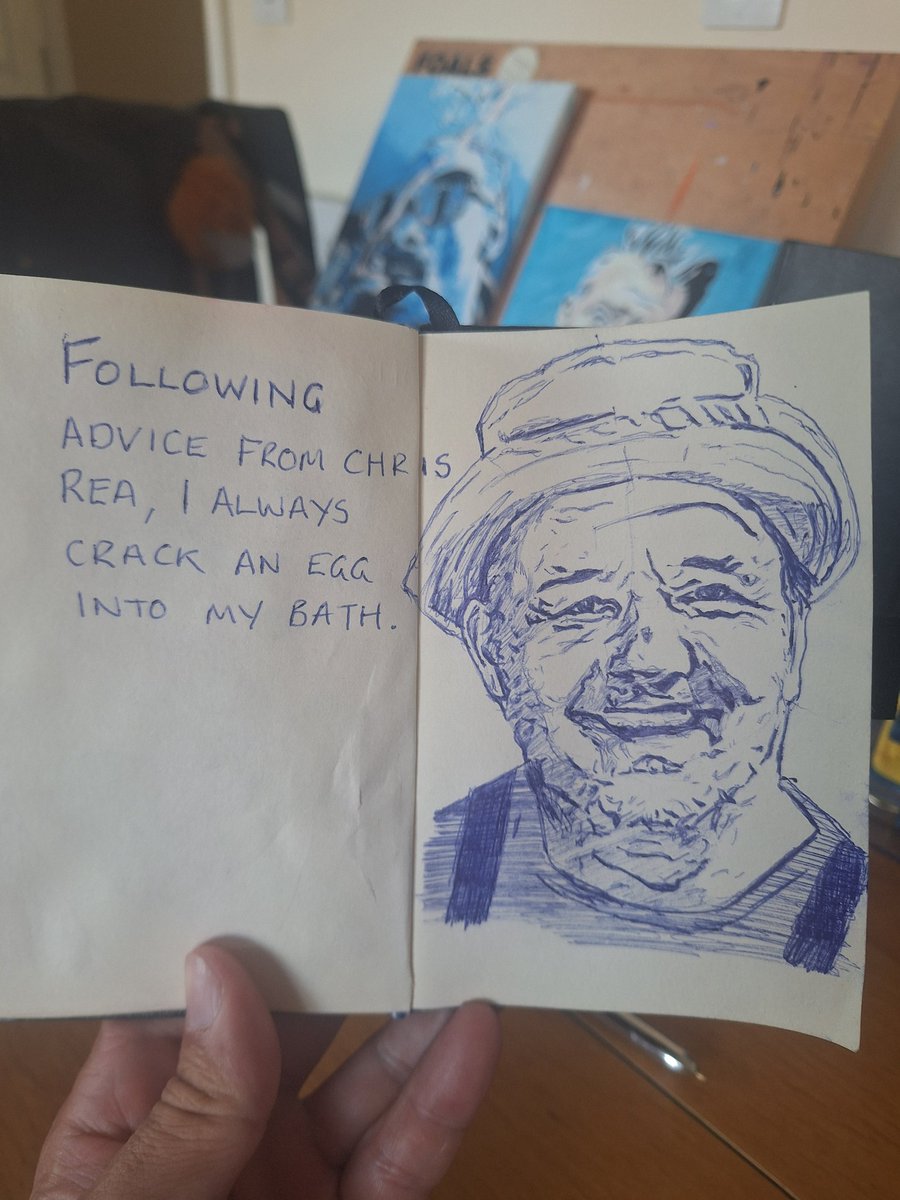 FOALE
FOLLOWING
ADVICE FROM CHRIS
REA, I ALWAYS
CRACK AN EGG
INTO MY BATH.